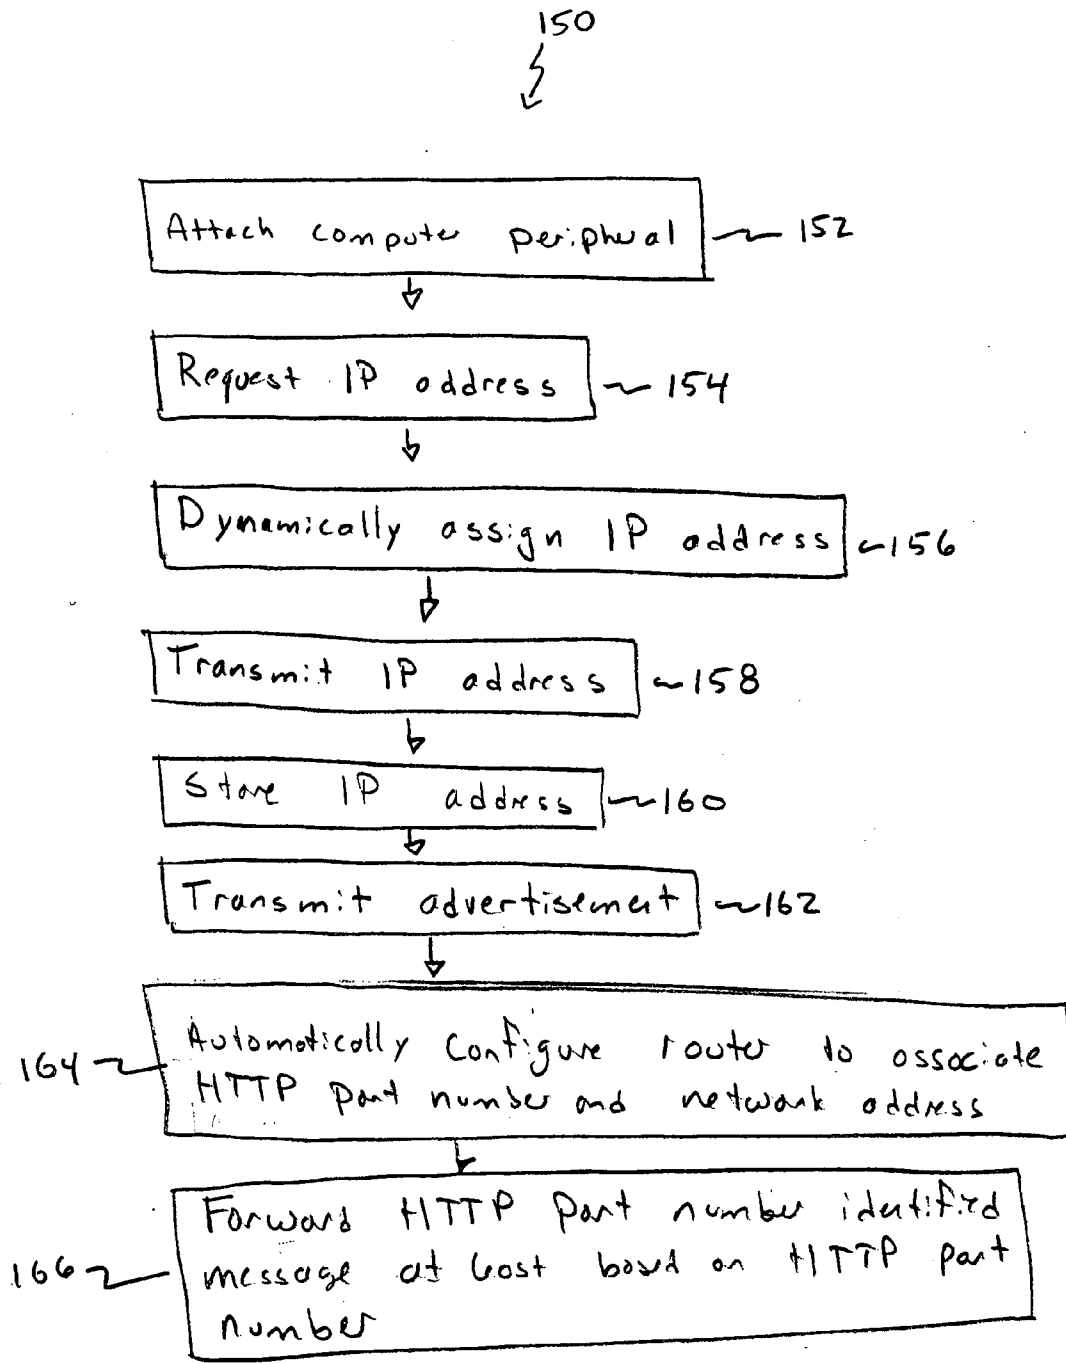 150
Attach computer peripheral
152
Request IP address
154
Dynamically assign IP address
156
Transmit IP address
158
Store IP address
160
Transmit advertisement
162
Automatically configure router to associate
HTTP port number and network address
164
Forward HTTP port number identified
message at least based on HTTP port
number
166